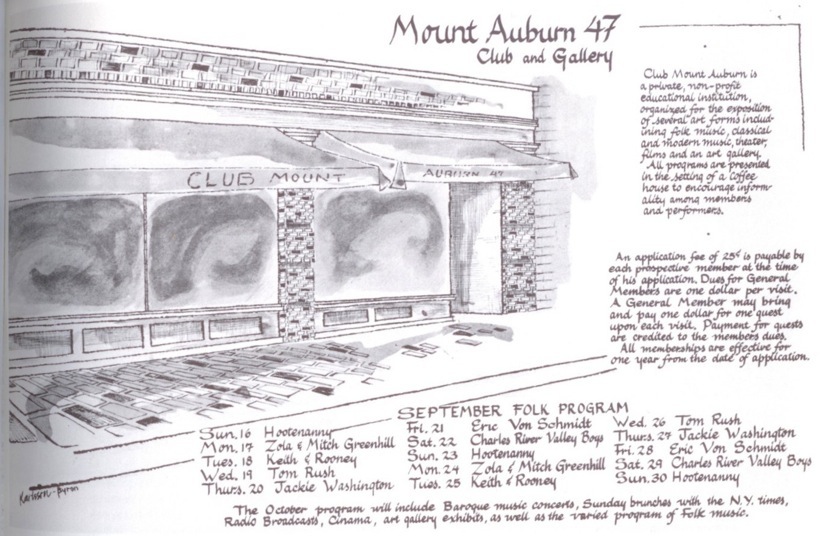 Mount Auburn 47
Club and Gallery
Club Mount Auburn is
a private, non-profit
educational institution,
organized for the exposition
of several art forms includ-
ining folk music, classical
and modern music, theater,
films and an art gallery.
All programs are presented
in the setting of a Coffee
house to encourage inform-
ality among members
and performers.
CLUB MOUNT AUBURN 47
An application fee of 25¢ is payable by
each prospective member at the time
of his application. Dues for General
Members are one dollar per visit.
A General Member may bring
and pay one dollar for one guest
upon each visit. Payment for guests
are credited to the members dues.
All memberships are effective for
one year from the date of application.
SEPTEMBER FOLK PROGRAM
Sun. 16 Hootenanny
Mon. 17 Zola & Mitch Greenhill
Tues. 18 Keith & Rooney
Wed. 19 Tom Rush
Thurs. 20 Jackie Washington
Fri. 21 Eric Von Schmidt
Sat. 22 Charles River Valley Boys
Sun. 23 Hootenanny
Mon. 24 Zola & Mitch Greenhill
Tues. 25 Keith & Rooney
Wed. 26 Tom Rush
Thurs. 27 Jackie Washington
Fri. 28 Eric Von Schmidt
Sat. 29 Charles River Valley Boys
Sun. 30 Hootenanny
The October program will include Baroque music concerts, Sunday brunches with the N.Y. times,
Radio Broadcasts, Cinama, art gallery exhibits, as well as the varied program of Folk music.